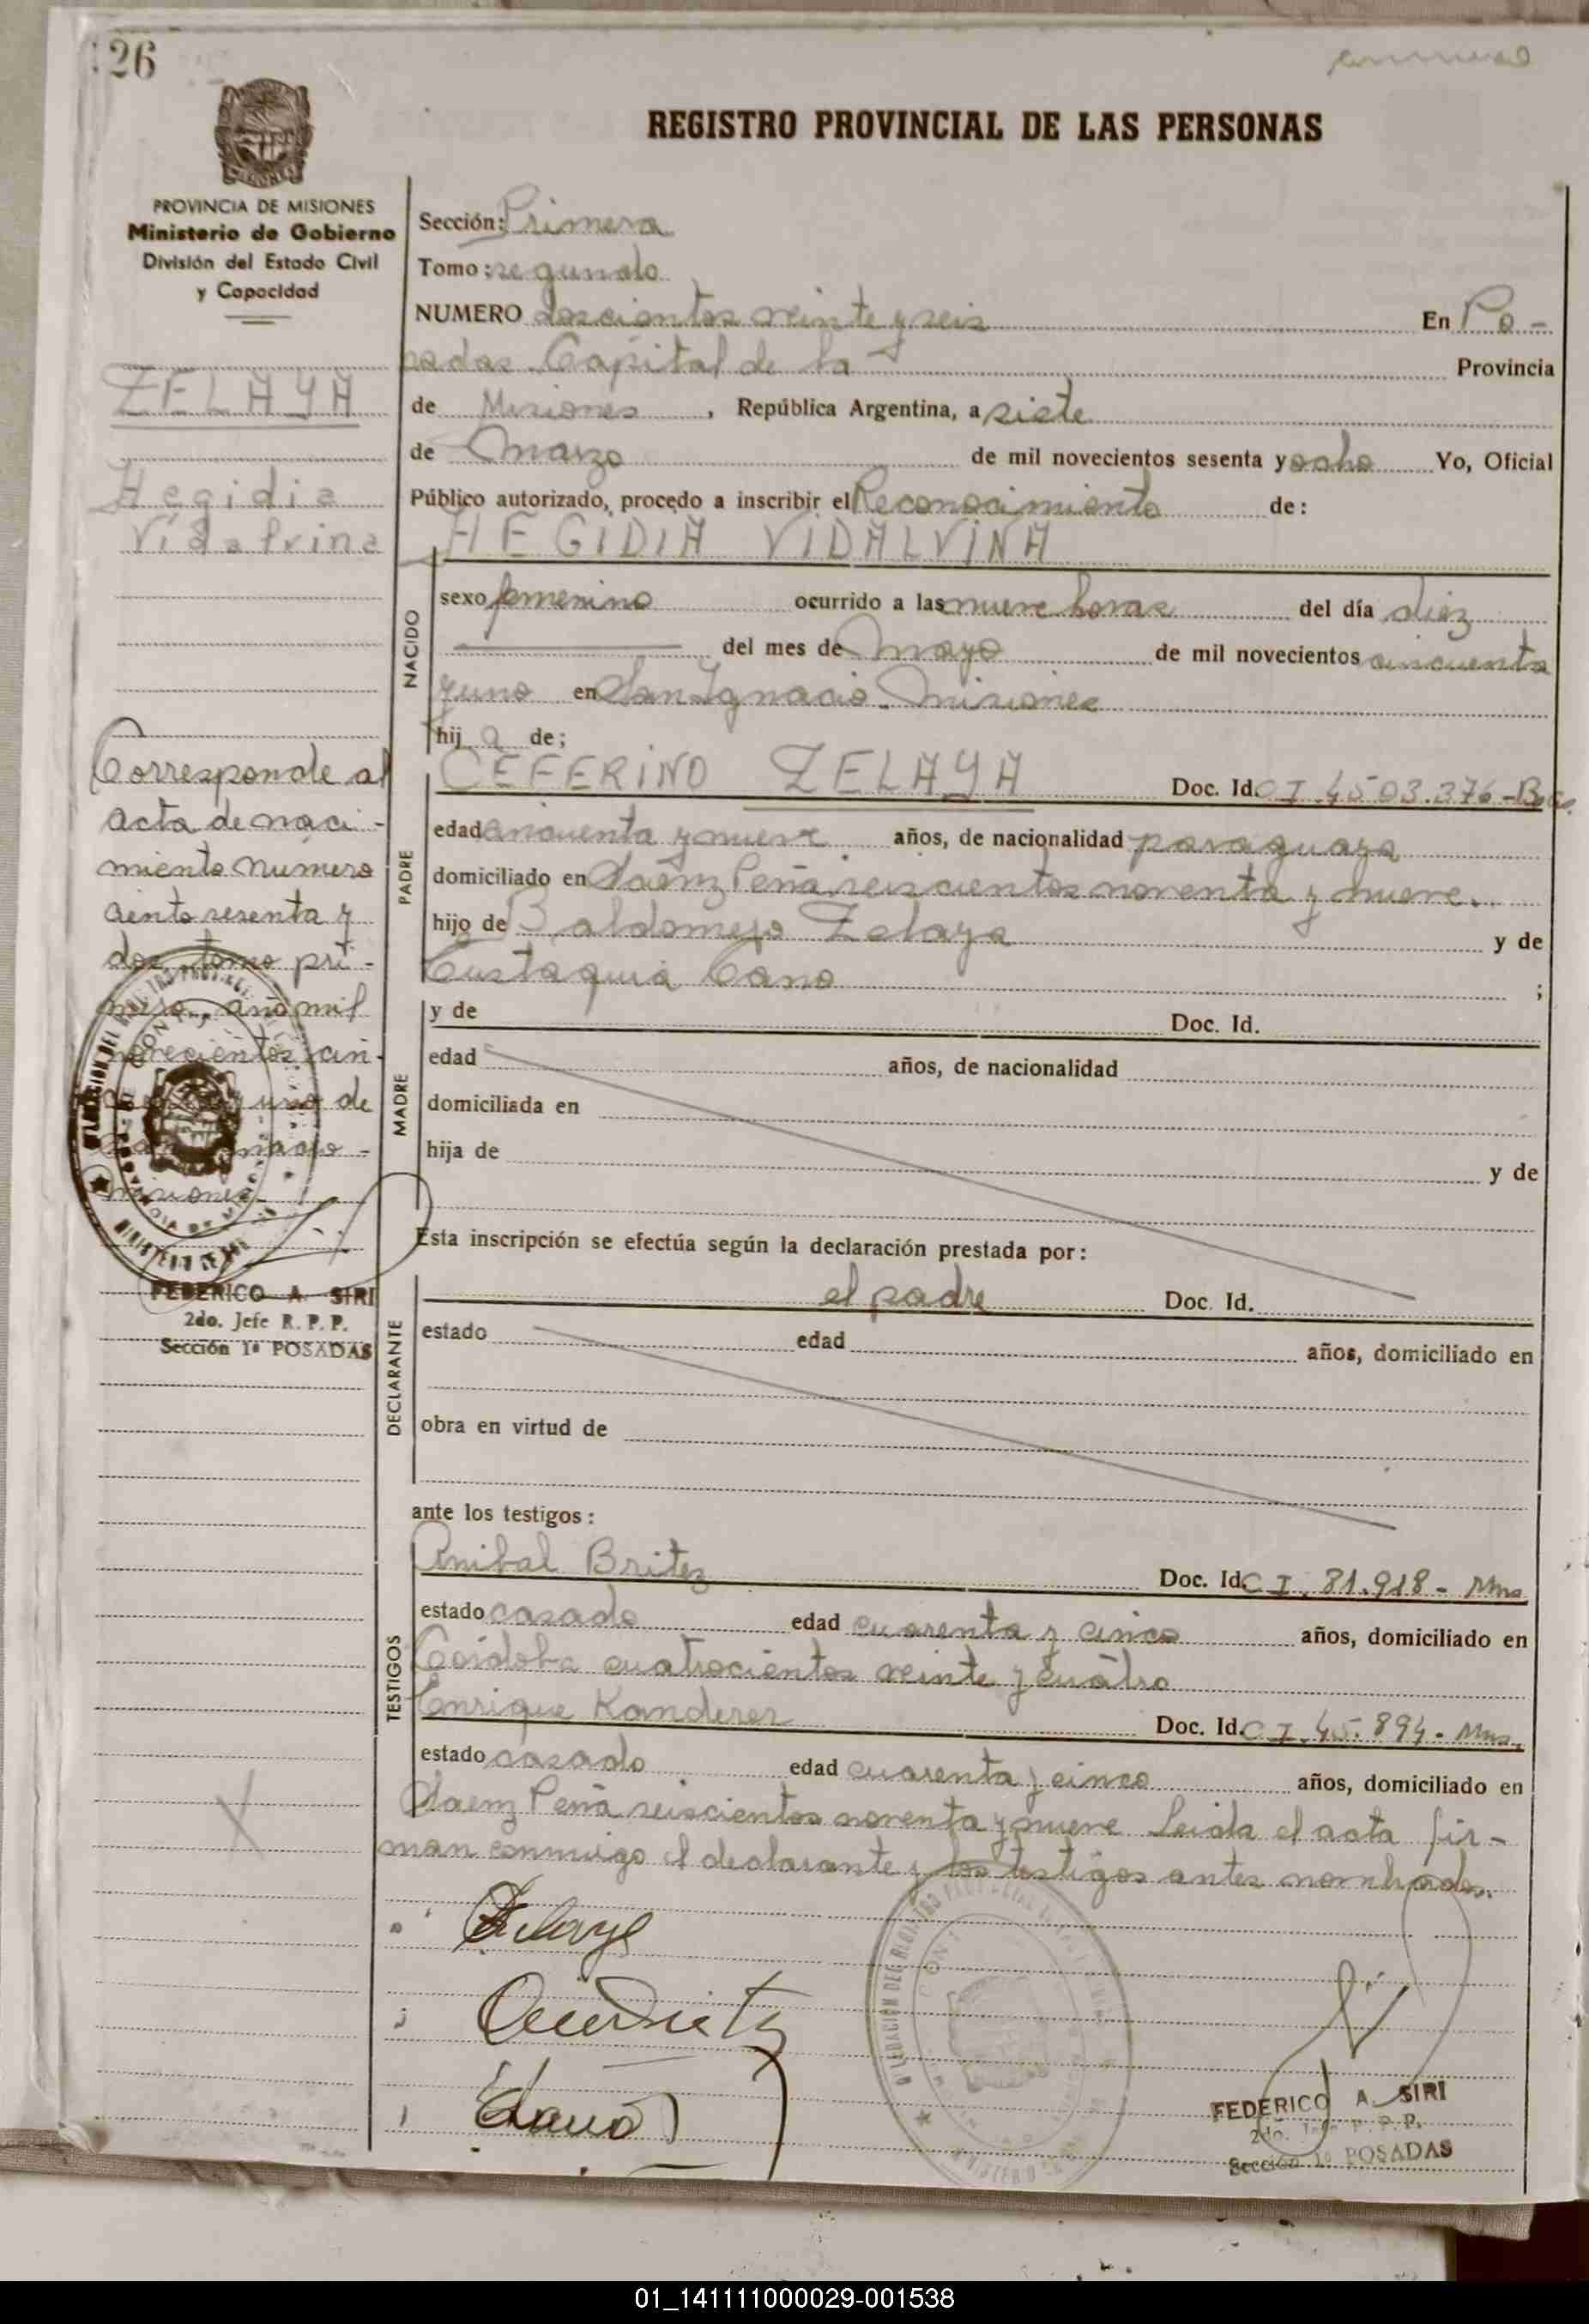 26
REGISTRO PROVINCIAL DE LAS PERSONAS
PROVINCIA DE MISIONES
Ministerio de Gobierno
División del Estado Civil
y Capacidad
ZELAYA
Hegidia
Vidalvina
Corresponde al
acta de naci-
miento número
ciento sesenta y
dos, tomo pri-
mero, año mil
novecientos cin-
uno de
misiones
FEDERICO A. SIRI
2do. Jefe R. P. P.
Sección 1ª POSADAS
Sección: Primera
Tomo: segundo
NUMERO doscientos veinte y seis En Po-
sadas Capital de la Provincia
de Misiones, República Argentina, a siete
de marzo de mil novecientos sesenta y ocho Yo, Oficial
Público autorizado, procedo a inscribir el Reconocimiento de:
HEGIDIA VIDALVINA
NACIDO
sexo femenino ocurrido a las nueve horas del día diez
del mes de mayo de mil novecientos cincuenta
y uno en San Ignacio - Misiones
hij a de;
PADRE
CEFERINO ZELAYA Doc. Id. C I. 4503.376-Bs.
edad cincuenta y nueve años, de nacionalidad paraguaya
domiciliado en Saenz Peña seiscientos noventa y nueve.
hijo de Baldomero Zelaya y de
Eustaquia Cano ;
MADRE
y de Doc. Id.
edad años, de nacionalidad
domiciliada en
hija de y de
Esta inscripción se efectúa según la declaración prestada por:
DECLARANTE
el padre Doc. Id.
estado edad años, domiciliado en
obra en virtud de
ante los testigos:
TESTIGOS
Anibal Britez Doc. Id. C I. 81.918 - Mns
estado casado edad cuarenta y cinco años, domiciliado en
Córdoba cuatrocientos veinte y cuatro
Enrique Kanderer Doc. Id. C I. 45.894 - Mns.
estado casado edad cuarenta y cinco años, domiciliado en
Saenz Peña seiscientos noventa y nueve Leida el acta fir-
man conmigo el declarante y los testigos antes nombrados.
Zelaya
FEDERICO A. SIRI
2do. Jefe R. P. P.
Sección 1ª POSADAS
01_141111000029-001538